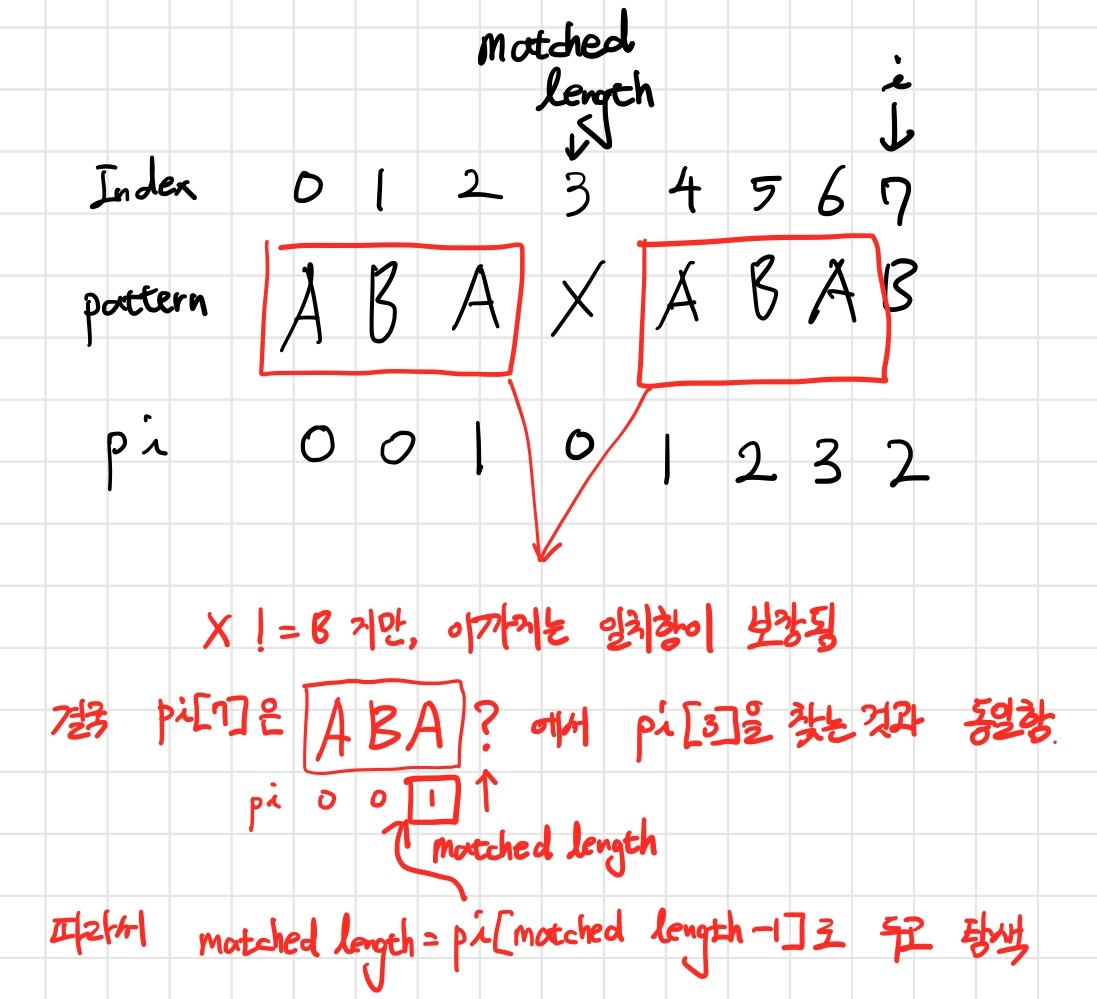 matched
length
i
Index 0 1 2 3 4 5 6 7
pattern A B A X A B A B
pi 0 0 1 0 1 2 3 2
X != B 지만, 이까지는 일치함이 보장됨
결국 pi[7]은 A B A ? 에서 pi[3]을 찾는 것과 동일함.
pi 0 0 1
matched length
따라서 matched length = pi[matched length-1]로 두고 탐색